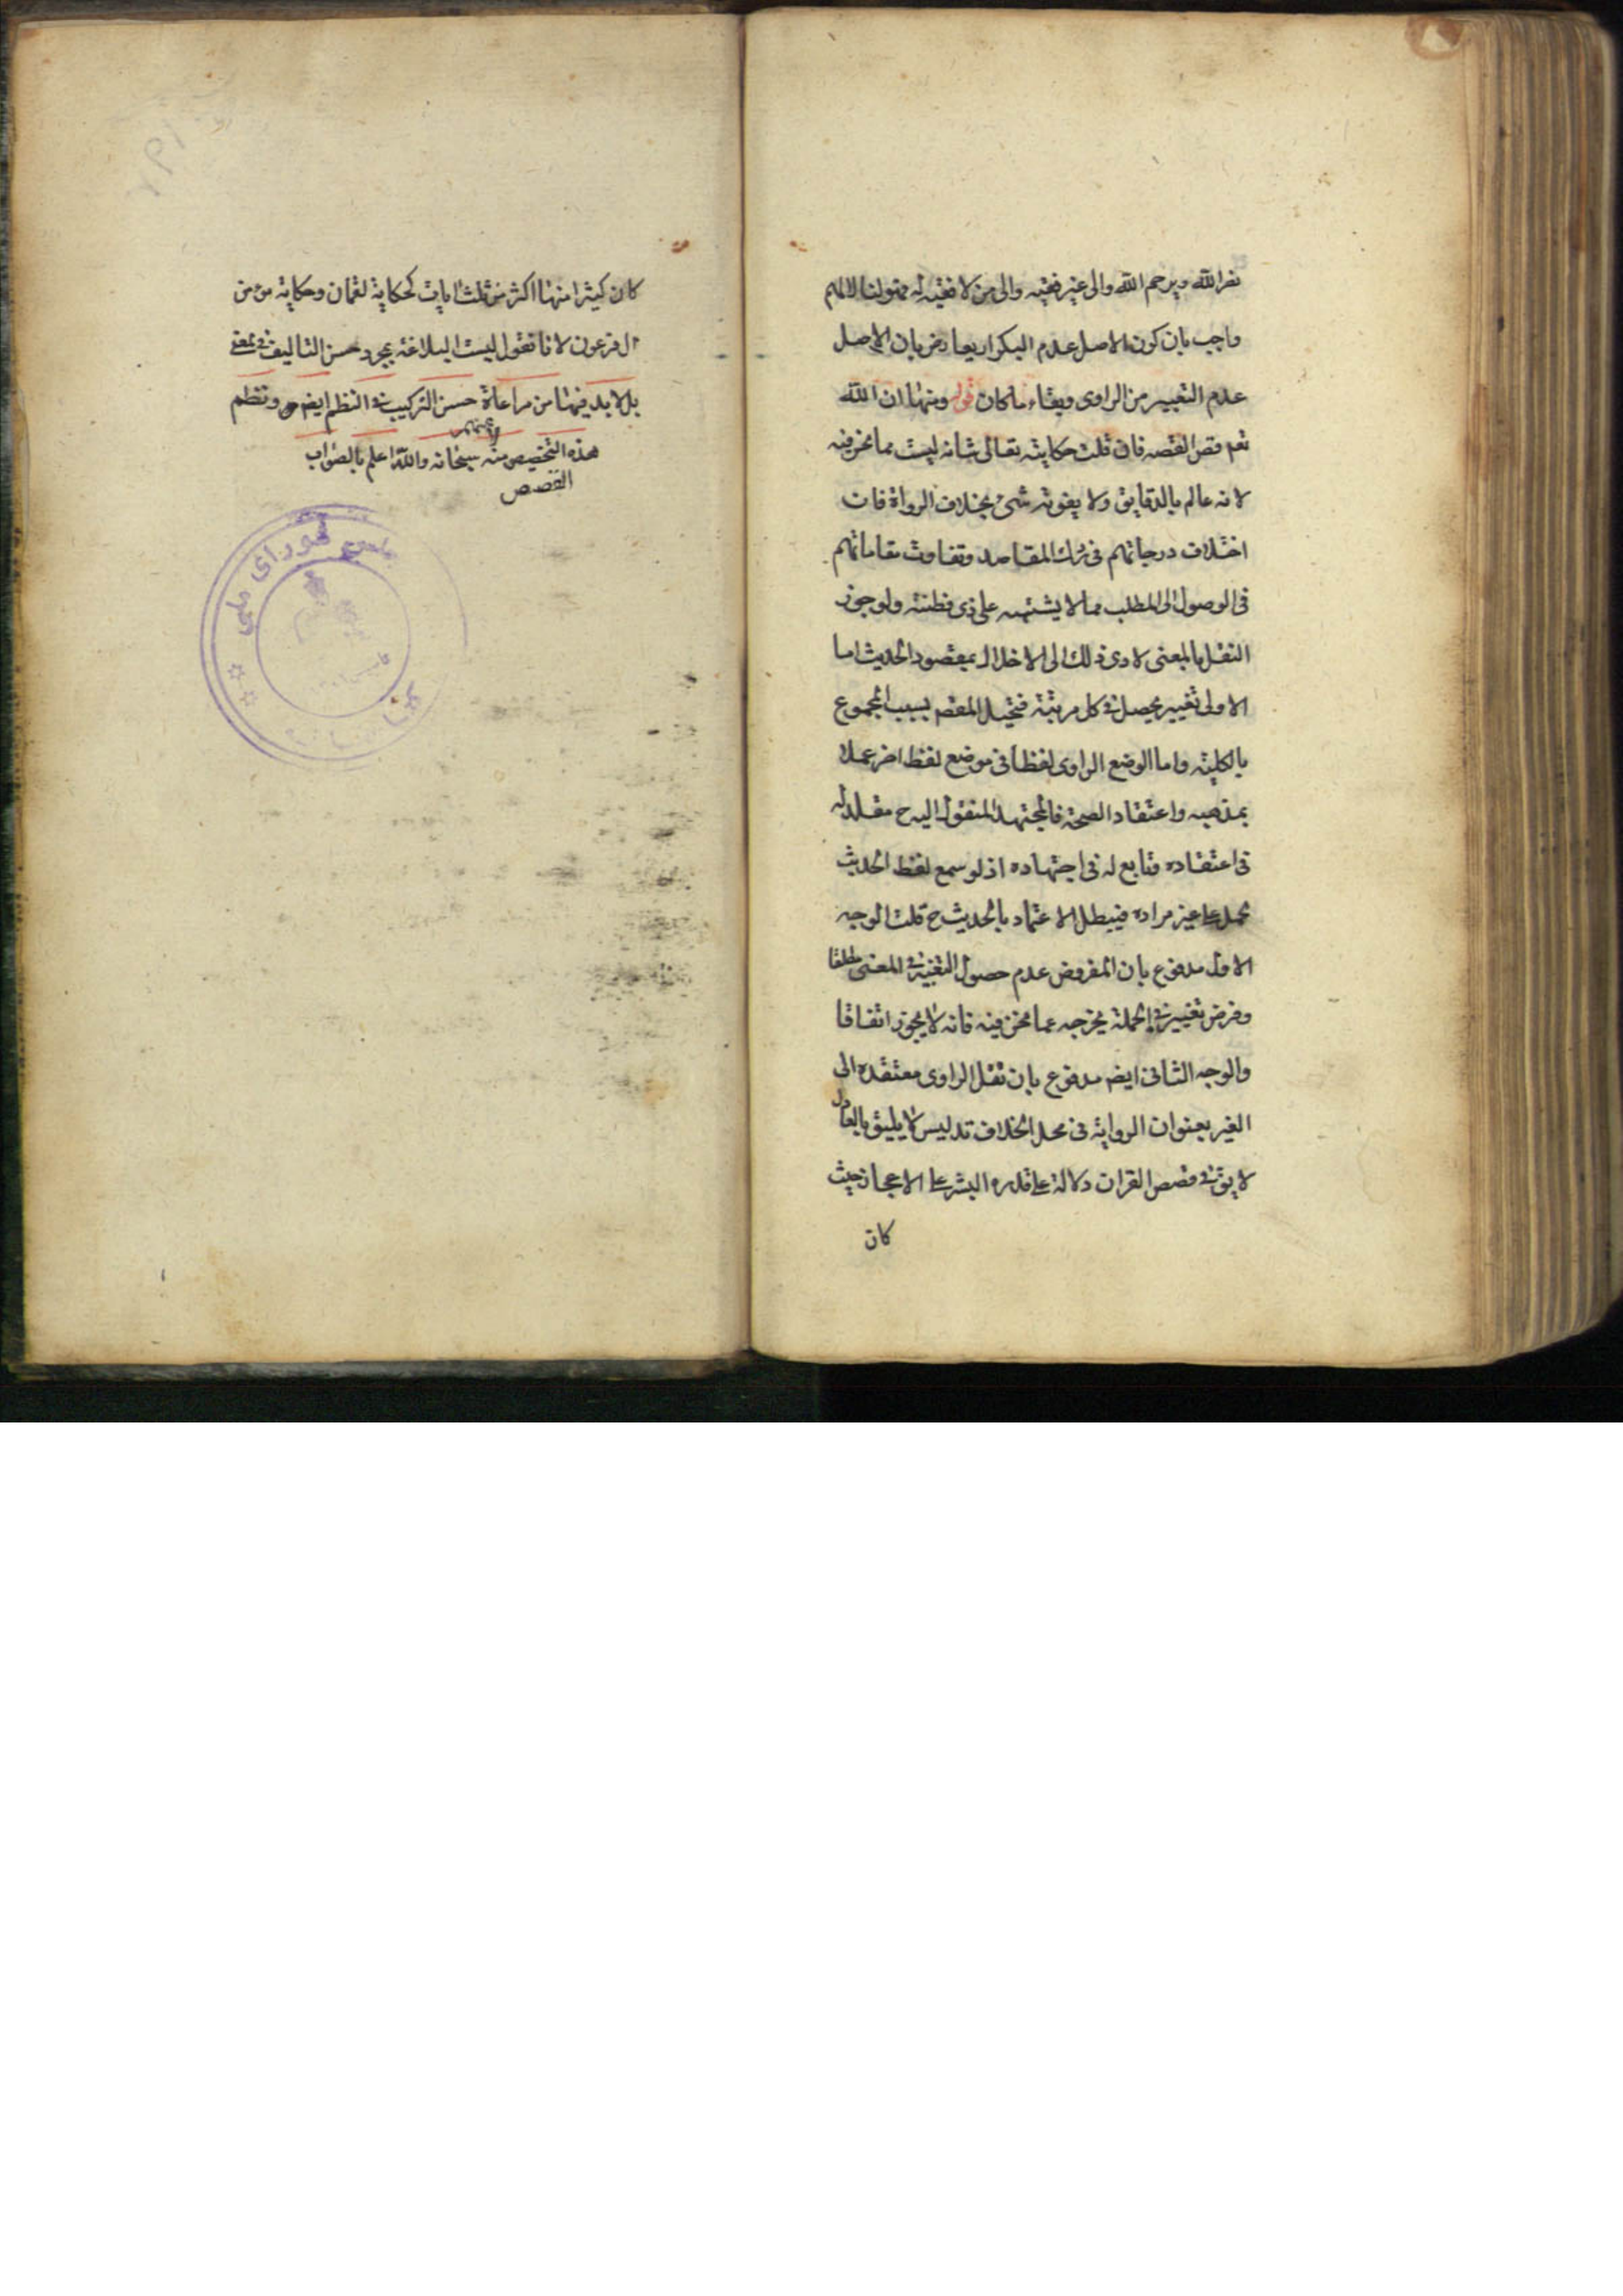 نضر الله ويرحم الله والى غير فقيه والى من لا فقيه له مقولنا لا المهم
واجيب بان كون الاصل عدم التكرار يعارض بان الاصل
عدم التغيير من الراوى وبقاء ما كان قوله ومنها ان الله
تعم قص القصه فان قلت حكايته تعالى شانه ليست مما نحن فيه
لانه عالم بالدقايق ولا يفوته شئ بخلاف الرواة فان
اختلاف درجاتهم فى درك المقاصد وتفاوت مقاماتهم
فى الوصول الى المطلب مما لا يشتبه على ذى فطنته ولو جوز
النقل بالمعنى لادى ذلك الى الاخلال بمقصود الحديث اما
الاولى تغيير يحصل فى كل مرتبة فيختل المقصد بسبب المجموع
بالكليته واما لوضع الراوى لفظا فى موضع لفظ اخر عملا
بمذهبه واعتقاد الصحة فالمجتهد المنقول اليه ح مقلد له
فى اعتقاده وتابع له فى اجتهاده اذ لو سمع لفظ الحديث
لحمل على غير مراده فيبطل الاعتماد بالحديث ح قلت الوجه
الاول مدفوع بان المفروض عدم حصول التغيير فى المعنى مطلقا
وفرض تغيير فى الجملة يخرجه عما نحن فيه فانه لا يجوز اتفاقا
والوجه الثانى ايضم مدفوع بان نقل الراوى معتقده الى
الغير بعنوان الرواية فى محل الخلاف تدليس لا يليق بالعادل
لا يق فى قصص القران دلالة على قدره البشر على الاعجاز حيث
كان
كان كثيرا منها اكثر من ثلث ايات كحكاية لقمان وحكاية مؤمن
ال فرعون لانا نقول ليست البلاغة بمجرد حسن التاليف فى معنى
بل لا بد فيها من مراعاة حسن التركيب فى النظم ايضم ونظم
هذه القصص منه سبحانه والله اعلم بالصواب
القصص
شوراى ملى